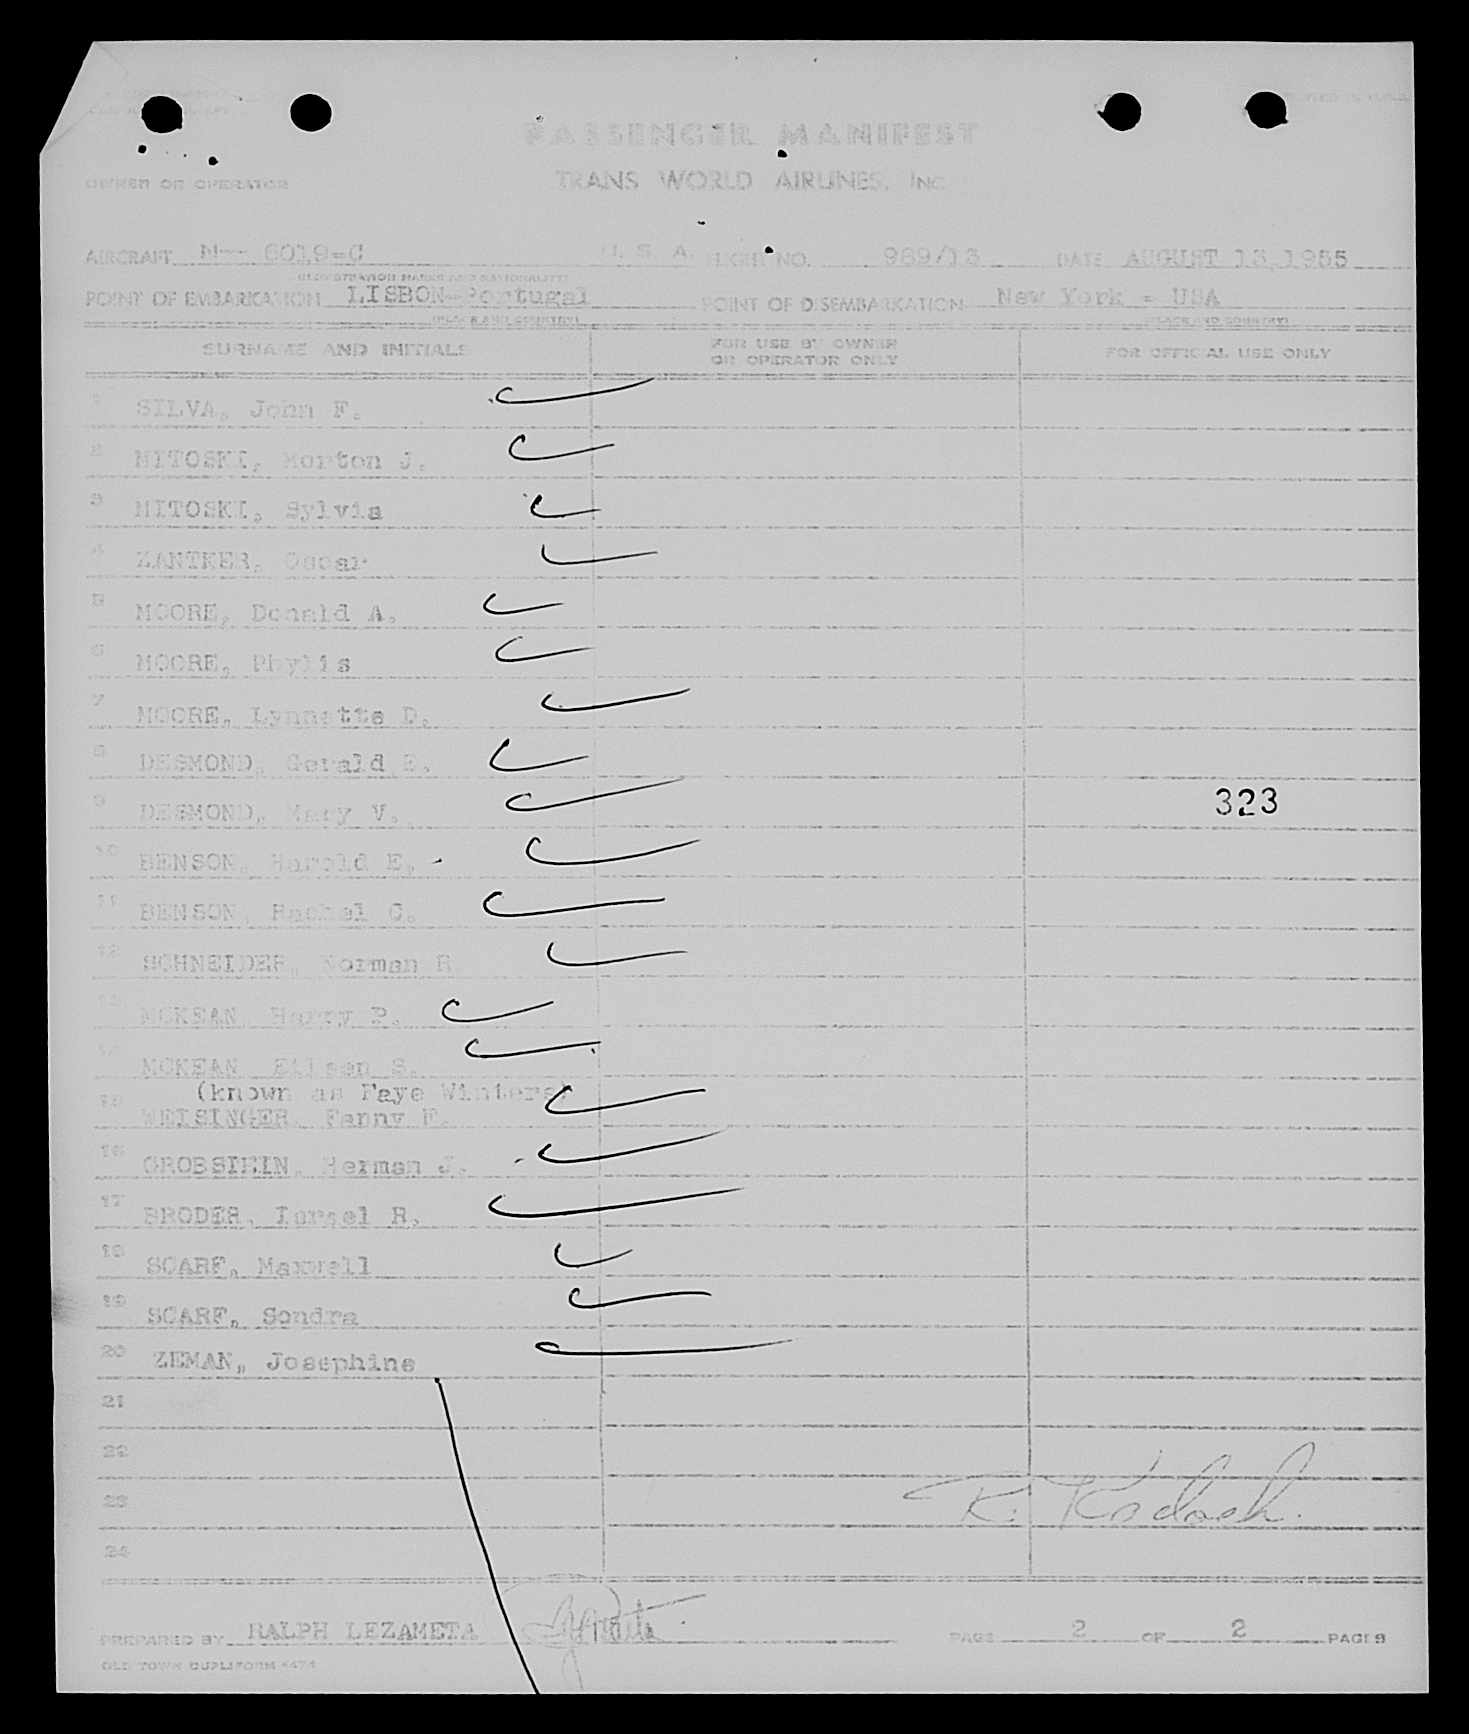 PASSENGER MANIFEST
OWNER OR OPERATOR TRANS WORLD AIRLINES, INC
AIRCRAFT N-- 6019=C U. S. A. FLIGHT NO. 989/13 DATE AUGUST 13,1955
(REGISTRATION MARKS AND NATIONALITY)
POINT OF EMBARKATION LISBON-Portugal POINT OF DISEMBARKATION New York = USA
(PLACE AND COUNTRY) (PLACE AND COUNTRY)
SURNAME AND INITIALS FOR USE BY OWNER OR OPERATOR ONLY FOR OFFICIAL USE ONLY
1 SILVA, John F.
2 MITOSKI, Morton J.
3 MITOSKI, Sylvia
4 ZANTKER, Oscar
5 MOORE, Donald A.
6 MOORE, Phylis
7 MOORE, Lynnette D.
8 DESMOND, Gerald E.
9 DESMOND, Mary V. 323
10 BENSON, Harold E.
11 BENSON, Rachel C.
12 SCHNEIDER, Norman R
13 MCKEAN, Harry P.
14 MCKEAN Eileen S.
(known as Faye Winters)
15 WEISINGER, Fanny F.
16 GROBSTEIN, Herman J.
17 BRODER, Israel R.
18 SCARF, Maxwell
19 SCARF, Sondra
20 ZEMAN, Josephine
21
22
23 R. Kadash.
24
PREPARED BY RALPH LEZAMETA PAGE 2 OF 2 PAGES
OLD TOWN DUPLIFORM